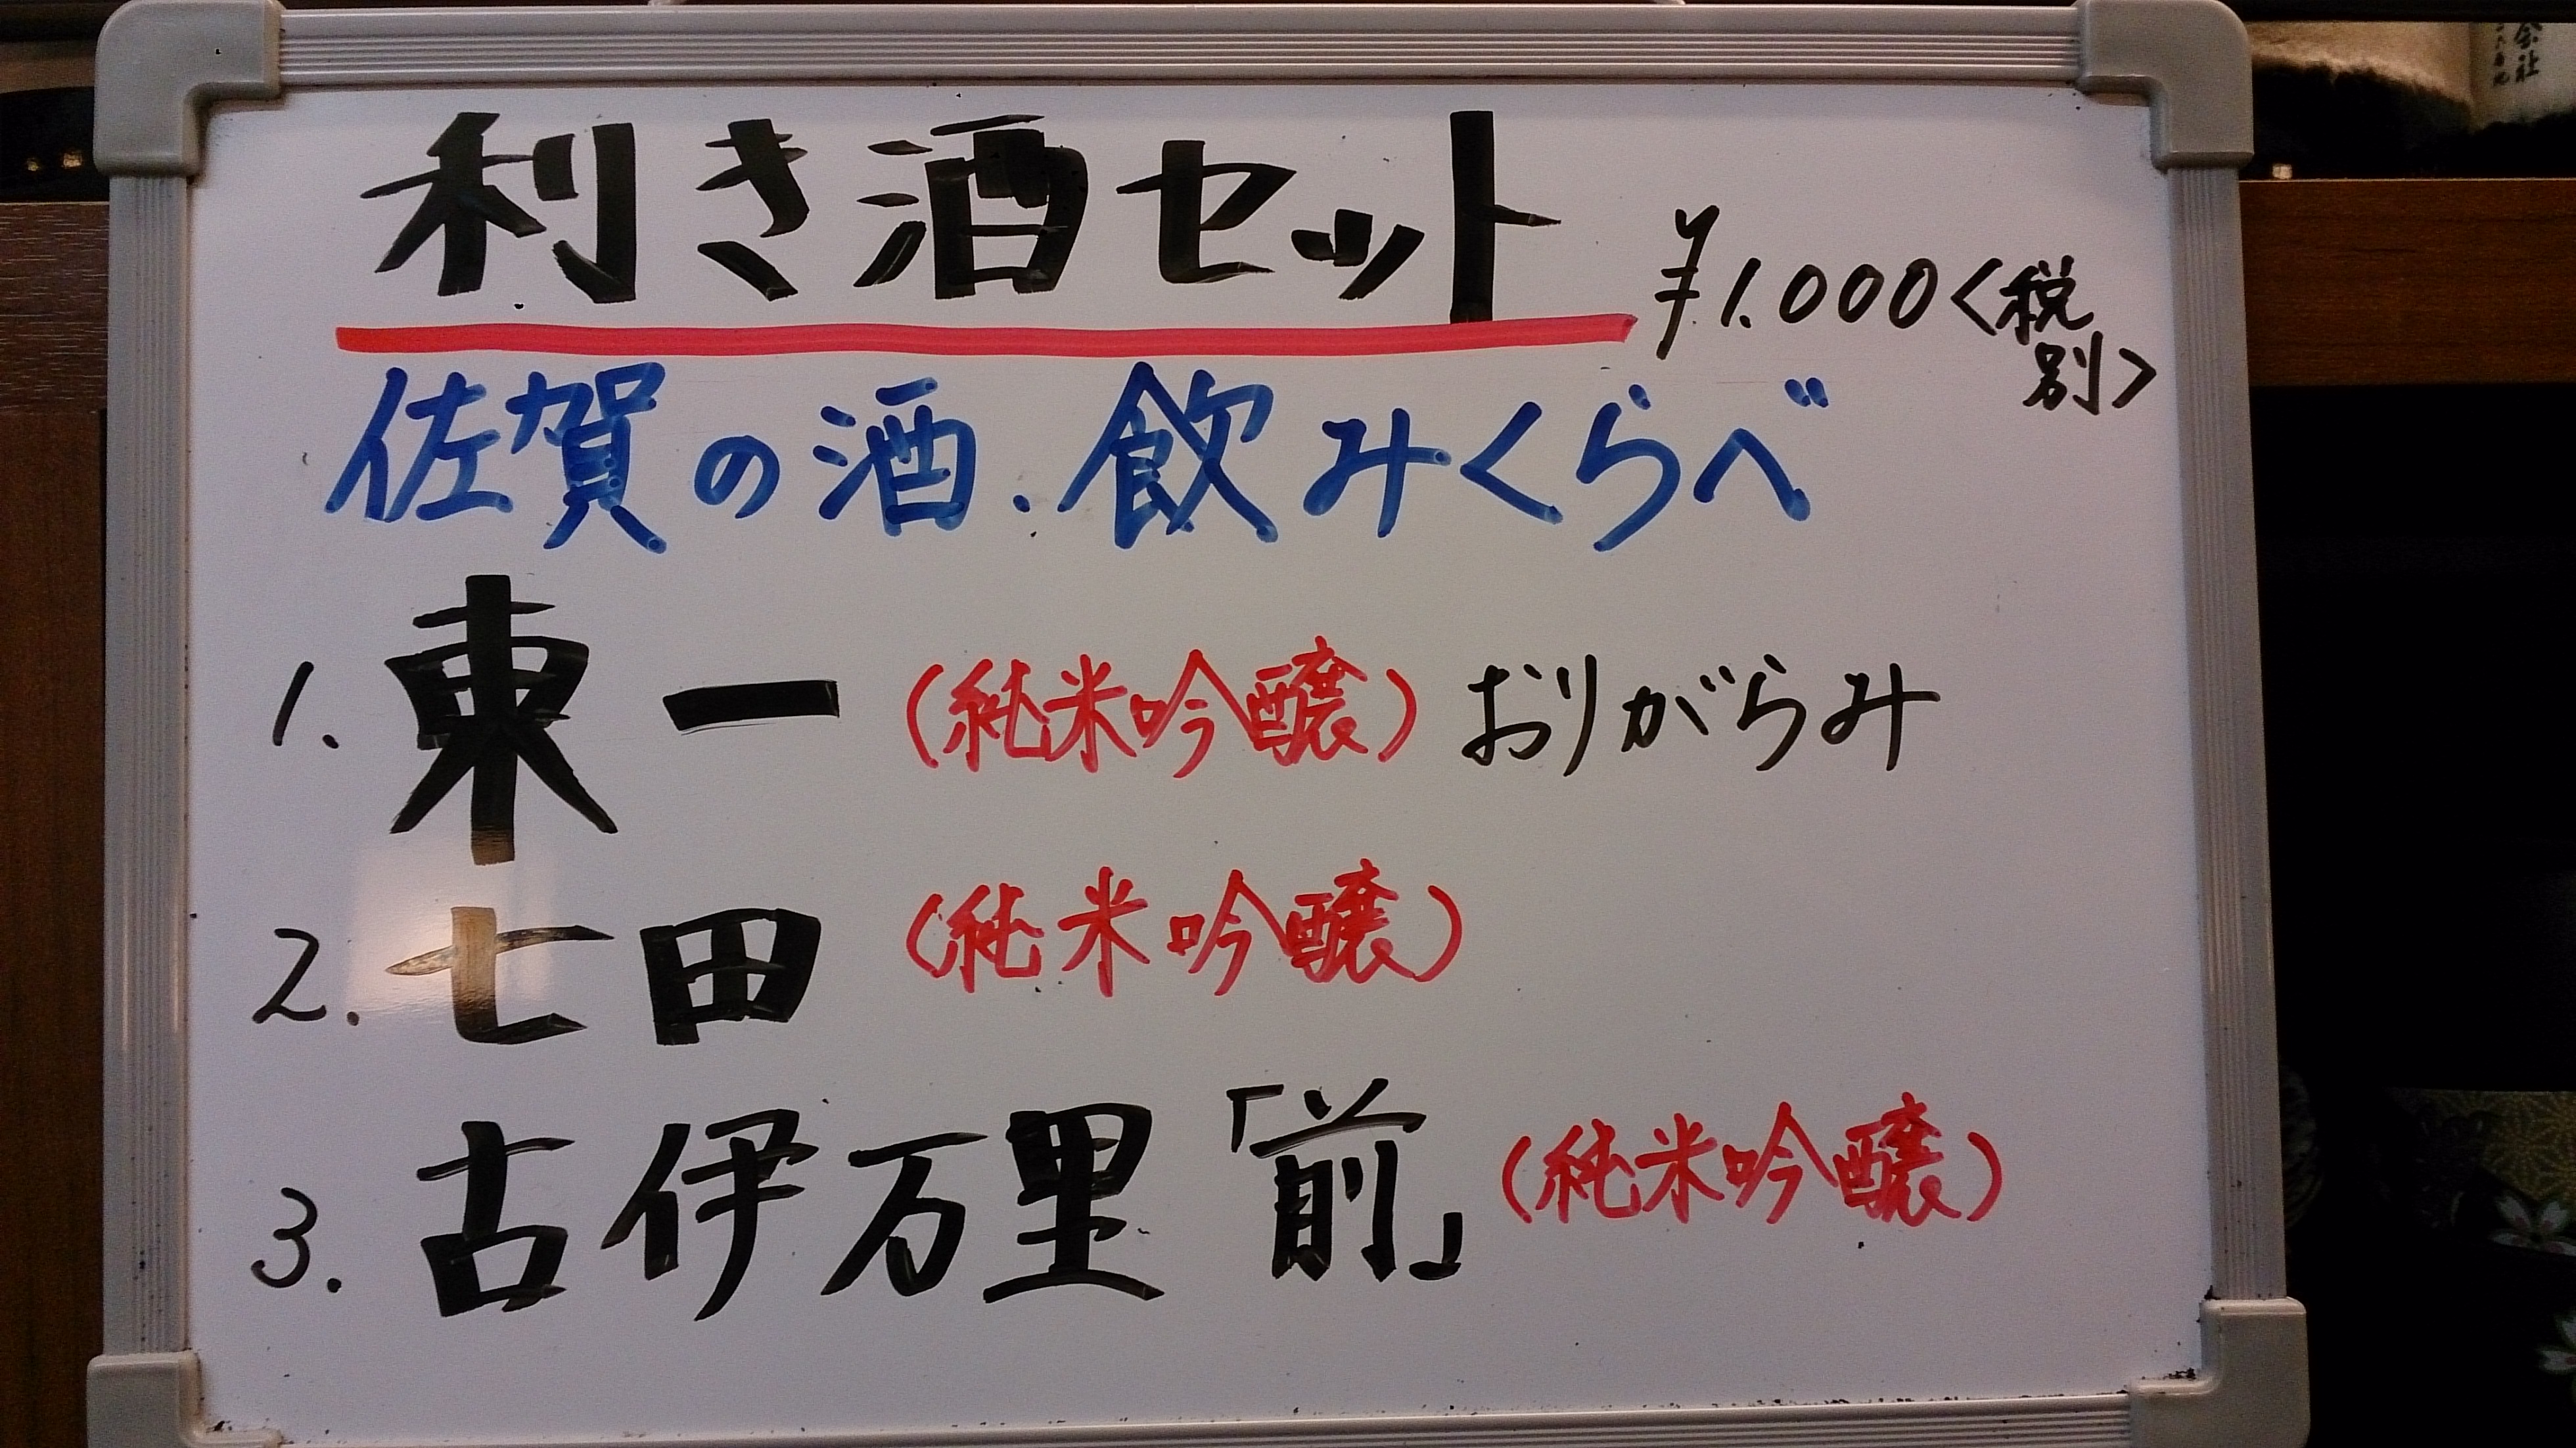 利き酒セット ¥1.000<税別>
佐賀の酒.飲みくらべ
1. 東一 (純米吟醸) おりがらみ
2. 七田 (純米吟醸)
3. 古伊万里「前」(純米吟醸)
会社